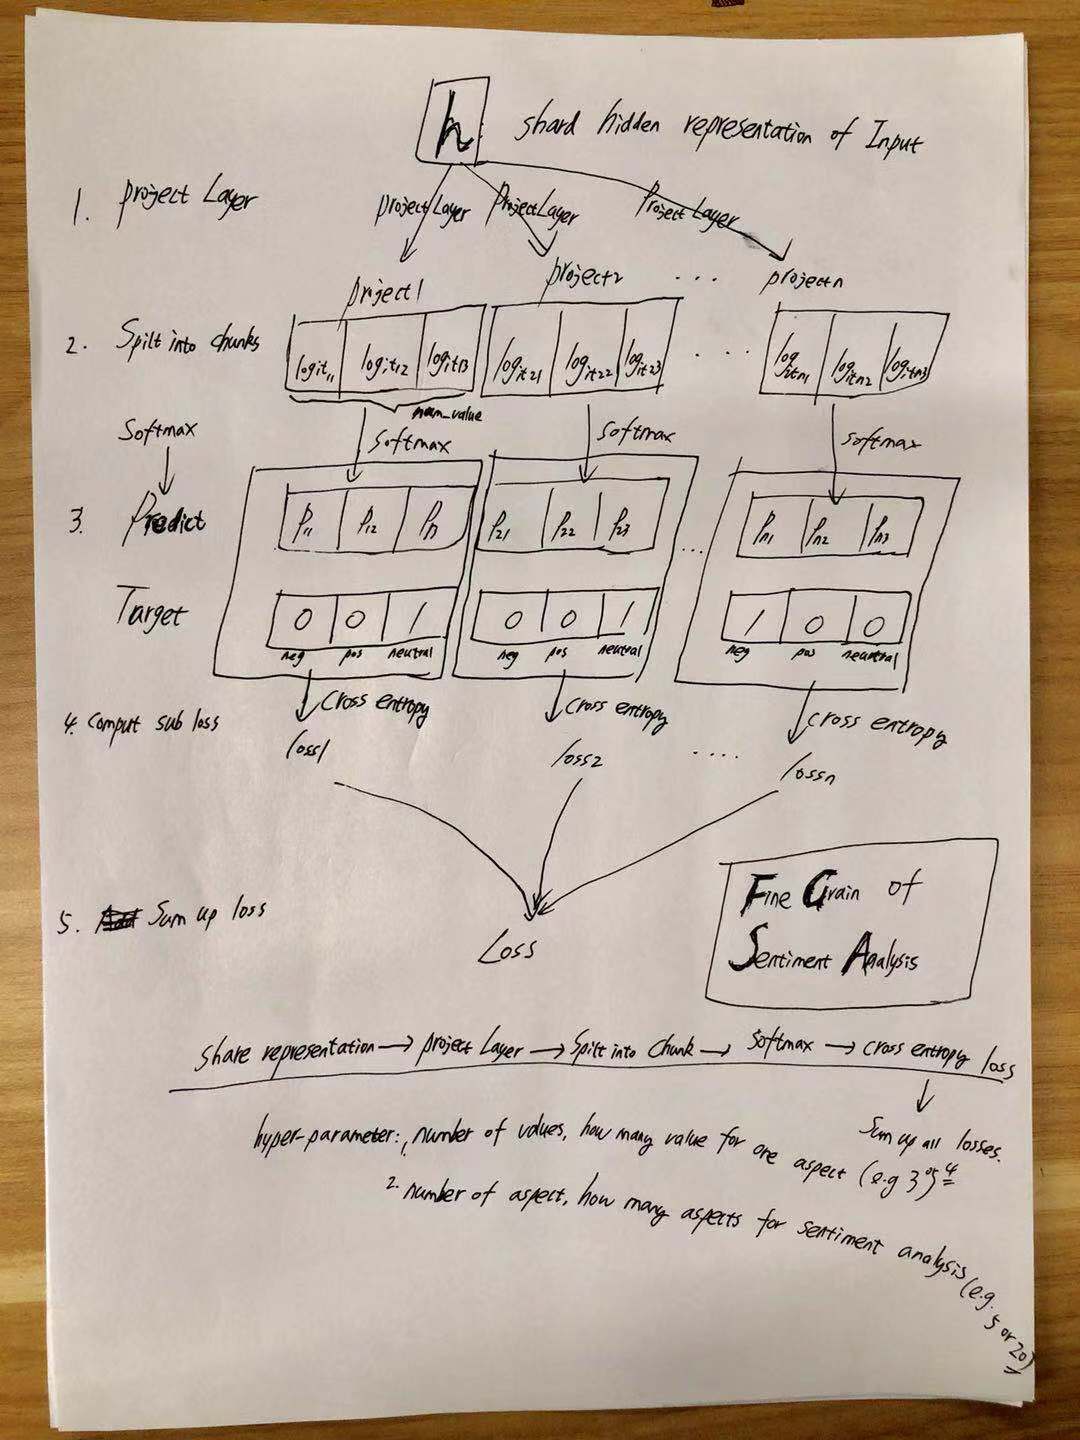 h shard hidden representation of Input
1. project Layer
project Layer Project Layer Project Layer
project1 project2 .... projectn
2. Spilt into chunks
logit11 logit12 logit13 logit21 logit22 logit23 .... logitn1 logitn2 logitn3
num_value
Softmax
softmax softmax softmax
3. Predict
P11 P12 P13 P21 P22 P23 ... Pn1 Pn2 Pn3
Target
0 0 1 0 0 1 1 0 0
neg pos neutral neg pos neutral neg pos neutral
4. Comput sub loss
cross entropy cross entropy cross entropy
loss1 loss2 .... lossn
5. Sum up loss
Loss
Fine Grain of
Sentiment Analysis
share representation → project Layer → Spilt into chunk → Softmax → cross entropy loss
Sum up all losses.
hyper-parameter: 1. number of values, how many value for one aspect (e.g 3 or 4)
2. number of aspect, how many aspects for sentiment analysis (e.g. 5 or 20)